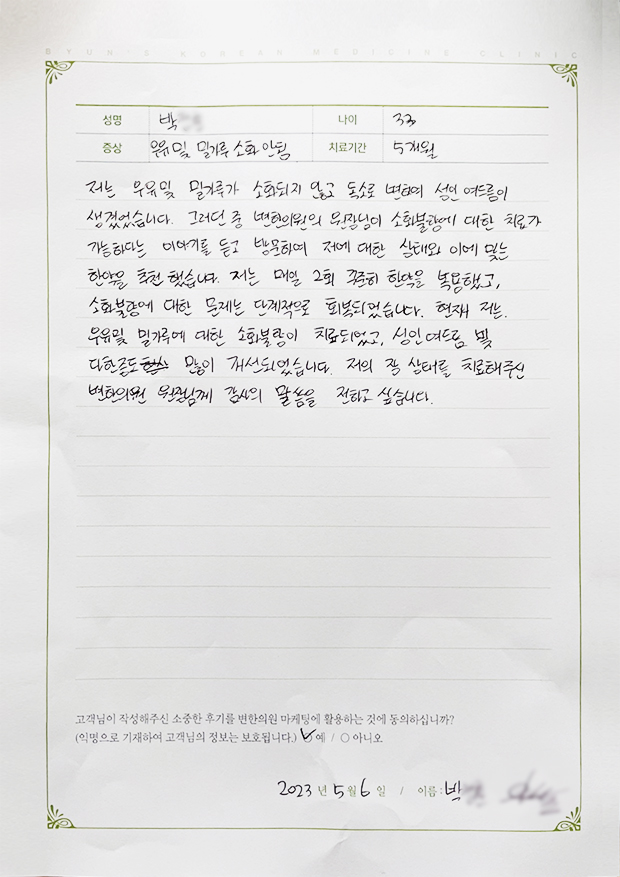 BYUN'S KOREAN MEDICINE CLINIC
성명 박 나이 33
증상 우유 및 밀가루 소화 안됨 치료기간 5개월
저는 우유및 밀가루가 소화되지 않고 독소로 변하여 성인 여드름이
생겼었습니다. 그러던 중 변한의원의 원장님이 소화불량에 대한 치료가
가능하다는 이야기를 듣고 방문하여 저에 대한 상태와 이에 맞는
한약을 추천했습니다. 저는 매일 2회 꾸준히 한약을 복용했고,
소화불량에 대한 문제는 단계적으로 회복되었습니다. 현재 저는.
우유및 밀가루에 대한 소화불량이 치료되었고, 성인여드름 및
다한증도 많이 개선되었습니다. 저의 장 상태를 치료해주신
변한의원 원장님께 감사의 말씀을 전하고 싶습니다.
고객님이 작성해주신 소중한 후기를 변한의원 마케팅에 활용하는 것에 동의하십니까?
(익명으로 기재하여 고객님의 정보는 보호됩니다.) ✓○ 예 / ○ 아니오
2023 년 5 월 6 일 / 이름 : 박